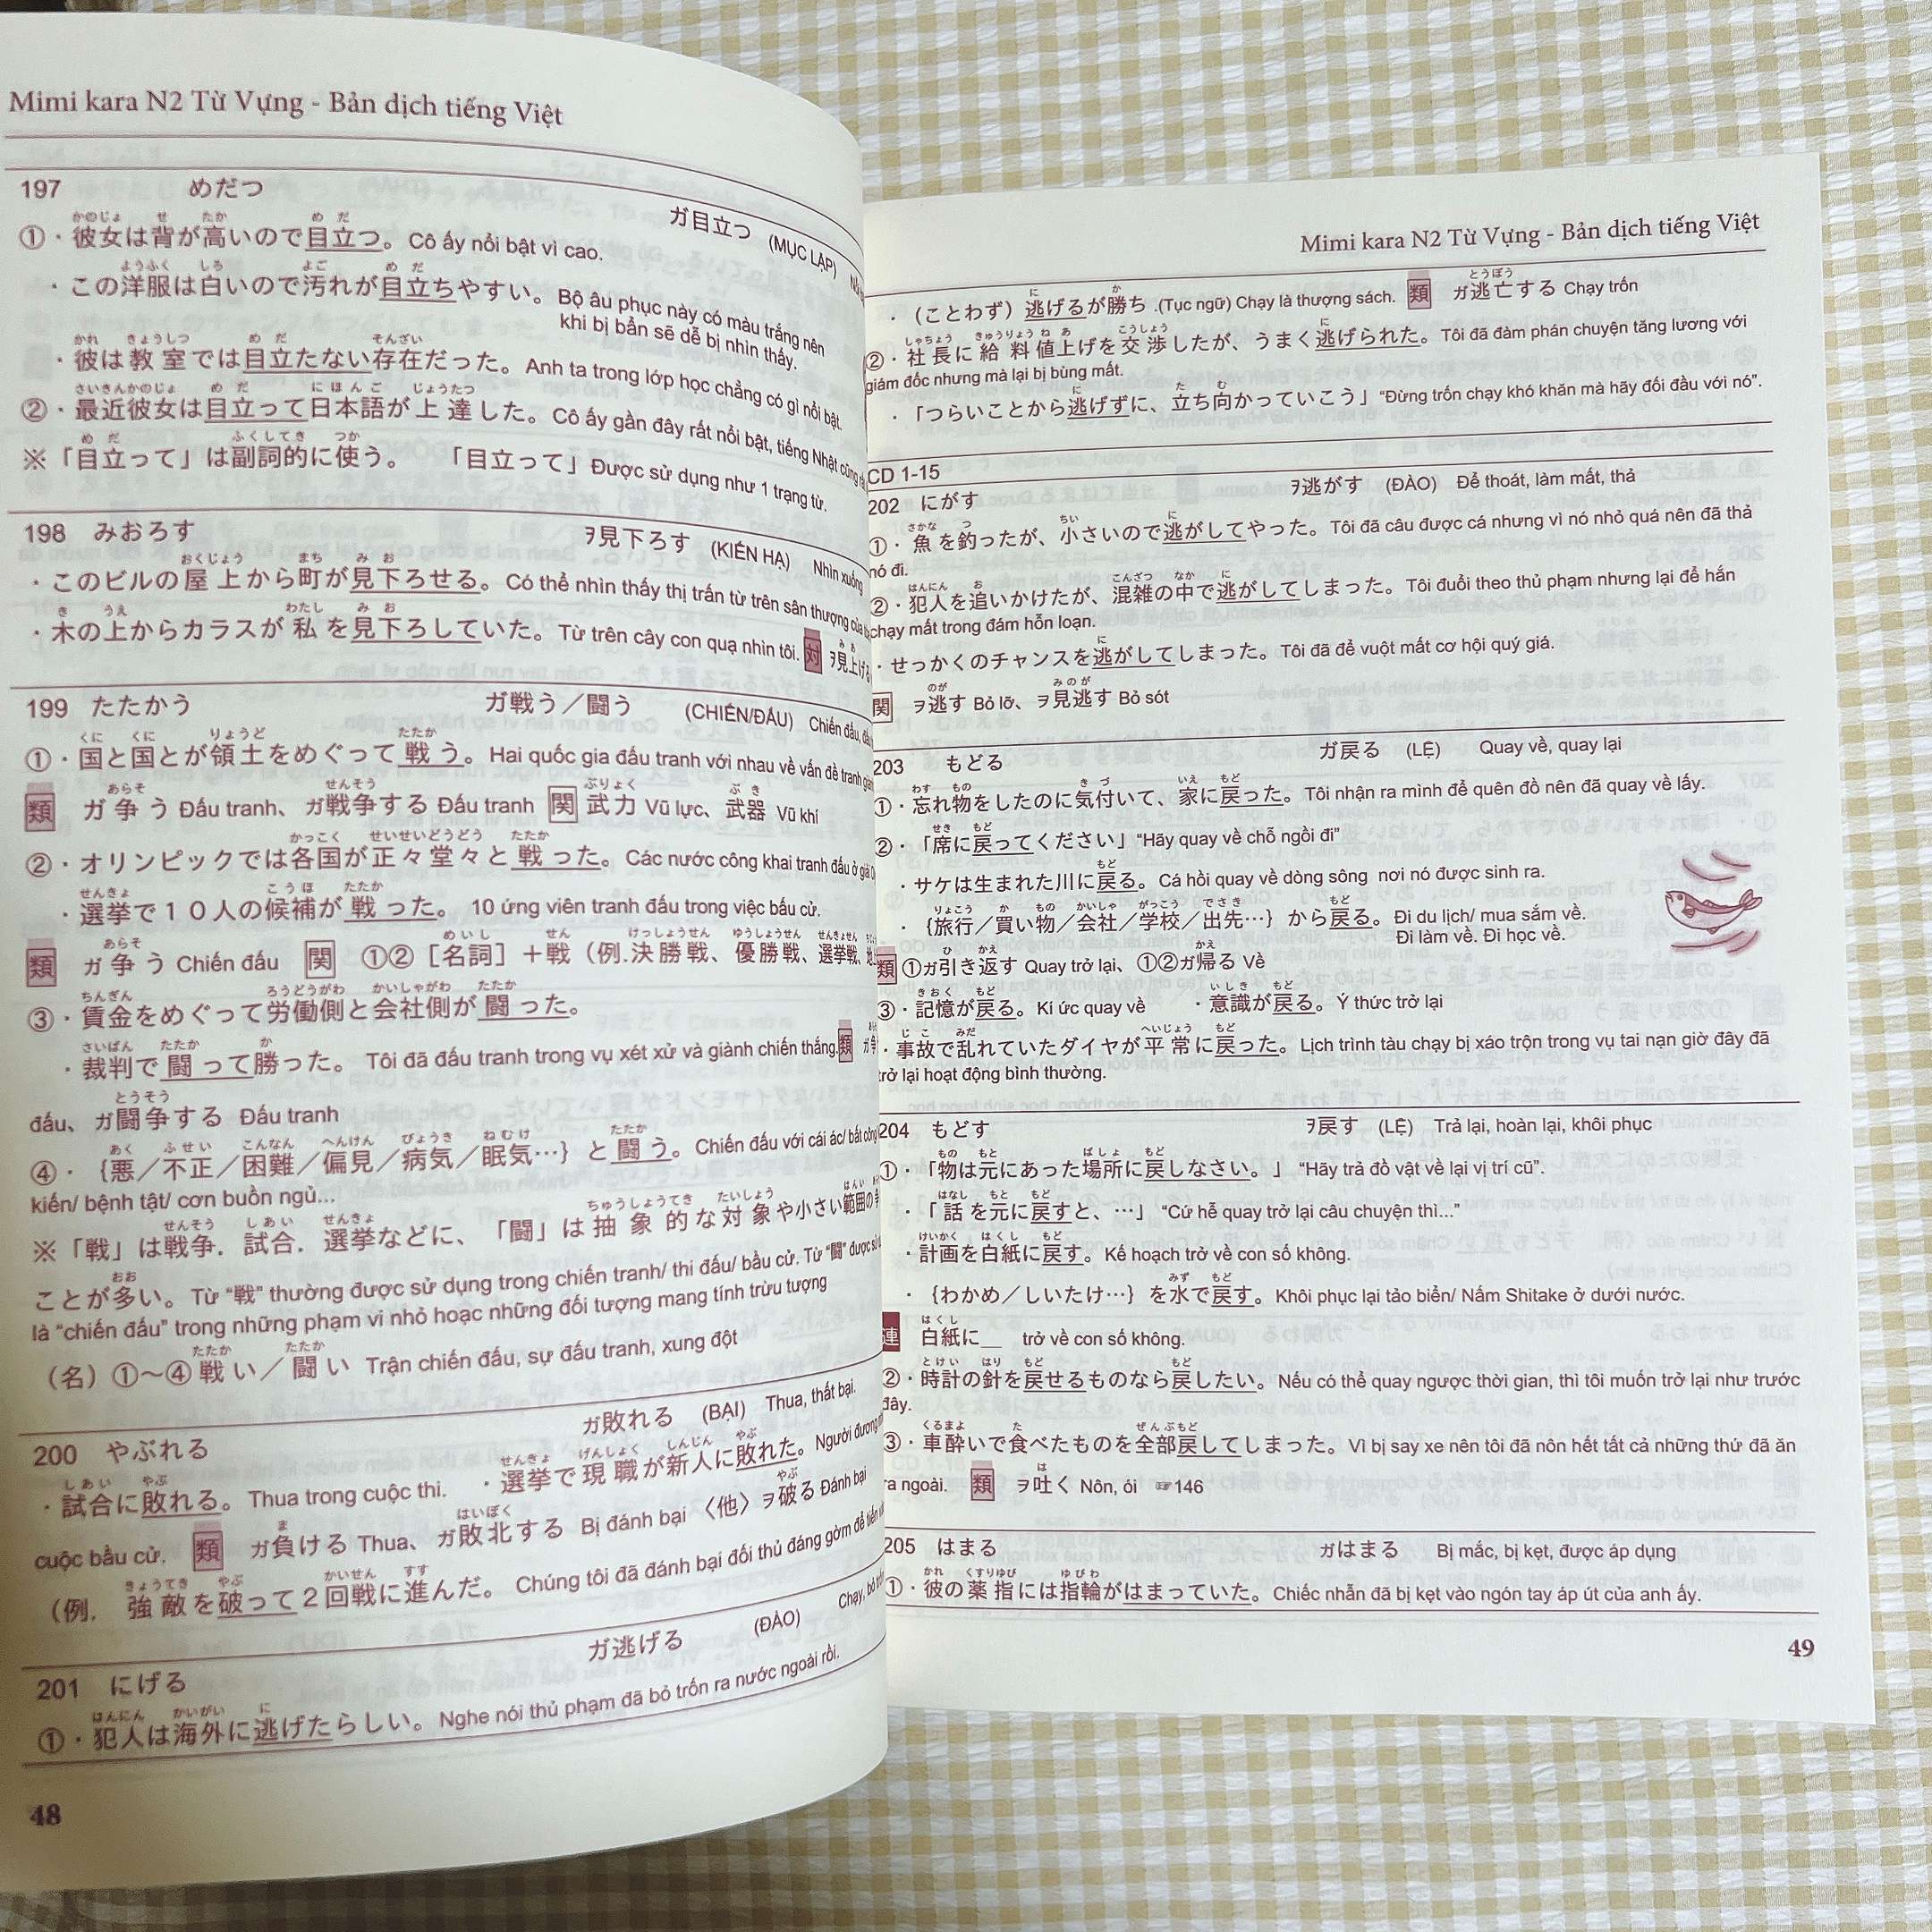 Mimi kara N2 Từ Vựng - Bản dịch tiếng Việt
197 めだつ ガ目立つ (MỤC LẬP)
①・彼女は背が高いので目立つ。Cô ấy nổi bật vì cao.
・この洋服は白いので汚れが目立ちやすい。Bộ âu phục này có màu trắng nên
khi bị bẩn sẽ dễ bị nhìn thấy.
・彼は教室では目立たない存在だった。Anh ta trong lớp học chẳng có gì nổi bật.
②・最近彼女は目立って日本語が上達した。Cô ấy gần đây rất nổi bật, tiếng Nhật cũng
※「目立って」は副詞的に使う。 「目立って」Được sử dụng như 1 trạng từ.
198 みおろす ヲ見下ろす (KIẾN HẠ) Nhìn xuống
・このビルの屋上から町が見下ろせる。Có thể nhìn thấy thị trấn từ trên sân thượng của
・木の上からカラスが私を見下ろしていた。Từ trên cây con quạ nhìn tôi. 対 ヲ見上げる
199 たたかう ガ戦う／闘う (CHIẾN/ĐẤU) Chiến đấu,
①・国と国とが領土をめぐって戦う。Hai quốc gia đấu tranh với nhau về vấn đề tranh
類 ガ争う Đấu tranh、ガ戦争する Đấu tranh 関 武力 Vũ lực、武器 Vũ khí
②・オリンピックでは各国が正々堂々と戦った。Các nước công khai tranh đấu ở
・選挙で１０人の候補が戦った。 10 ứng viên tranh đấu trong việc bầu cử.
類 ガ争う Chiến đấu 関 ①②［名詞］＋戦（例.決勝戦、優勝戦、選挙戦、
③・賃金をめぐって労働側と会社側が闘った。
・裁判で闘って勝った。 Tôi đã đấu tranh trong vụ xét xử và giành chiến thắng. 類 ガ争
đấu、ガ闘争する Đấu tranh
④・｛悪／不正／困難／偏見／病気／眠気…｝と闘う。Chiến đấu với cái ác/ bất công
kiến/ bệnh tật/ cơn buồn ngủ...
※「戦」は戦争．試合．選挙などに、「闘」は抽象的な対象や小さい範囲の
ことが多い。Từ “戦” thường được sử dụng trong chiến tranh/ thi đấu/ bầu cử. Từ “闘” được
là “chiến đấu” trong những phạm vi nhỏ hoặc những đối tượng mang tính trừu tượng
（名）①～④戦い／闘い Trận chiến đấu, sự đấu tranh, xung đột
200 やぶれる ガ敗れる (BẠI) Thua, thất bại.
・試合に敗れる。Thua trong cuộc thi. ・選挙で現職が新人に敗れた。Người đương
cuộc bầu cử. 類 ガ負ける Thua、ガ敗北する Bị đánh bại 〈他〉ヲ破る Đánh bại
（例． 強敵を破って２回戦に進んだ。 Chúng tôi đã đánh bại đối thủ đáng gờm để tiến
201 にげる ガ逃げる (ĐÀO) Chạy,
①・犯人は海外に逃げたらしい。Nghe nói thủ phạm đã bỏ trốn ra nước ngoài rồi.
48
Mimi kara N2 Từ Vựng - Bản dịch tiếng Việt
・（ことわざ）逃げるが勝ち .(Tục ngữ) Chạy là thượng sách. 類 ガ逃亡する Chạy trốn
②・社長に給料値上げを交渉したが、うまく逃げられた。Tôi đã đàm phán chuyện tăng lương với
giám đốc nhưng mà lại bị bùng mất.
・「つらいことから逃げずに、立ち向かっていこう」“Đừng trốn chạy khó khăn mà hãy đối đầu với nó”.
CD 1-15
202 にがす ヲ逃がす (ĐÀO) Để thoát, làm mất, thả
①・魚を釣ったが、小さいので逃がしてやった。Tôi đã câu được cá nhưng vì nó nhỏ quá nên đã thả
nó đi.
②・犯人を追いかけたが、混雑の中で逃がしてしまった。Tôi đuổi theo thủ phạm nhưng lại để hắn
chạy mất trong đám hỗn loạn.
・せっかくのチャンスを逃がしてしまった。Tôi đã để vuột mất cơ hội quý giá.
関 ヲ逃す Bỏ lỡ、ヲ見逃す Bỏ sót
203 もどる ガ戻る (LỆ) Quay về, quay lại
①・忘れ物をしたのに気付いて、家に戻った。Tôi nhận ra mình để quên đồ nên đã quay về lấy.
②・「席に戻ってください」“Hãy quay về chỗ ngồi đi”
・サケは生まれた川に戻る。Cá hồi quay về dòng sông nơi nó được sinh ra.
・｛旅行／買い物／会社／学校／出先…｝から戻る。Đi du lịch/ mua sắm về.
Đi làm về. Đi học về.
類 ①ガ引き返す Quay trở lại、①②ガ帰る Về
③・記憶が戻る。Kí ức quay về ・意識が戻る。Ý thức trở lại
・事故で乱れていたダイヤが平常に戻った。Lịch trình tàu chạy bị xáo trộn trong vụ tai nạn giờ đây đã
trở lại hoạt động bình thường.
204 もどす ヲ戻す (LỆ) Trả lại, hoàn lại, khôi phục
①・「物は元にあった場所に戻しなさい。」“Hãy trả đồ vật về lại vị trí cũ”.
・「話を元に戻すと、…」“Cứ hễ quay trở lại câu chuyện thì...”
・計画を白紙に戻す。Kế hoạch trở về con số không.
・｛わかめ／しいたけ…｝を水で戻す。Khôi phục lại tảo biển/ Nấm Shitake ở dưới nước.
連 白紙に＿ trở về con số không.
②・時計の針を戻せるものなら戻したい。Nếu có thể quay ngược thời gian, thì tôi muốn trở lại như trước
đây.
③・車酔いで食べたものを全部戻してしまった。Vì bị say xe nên tôi đã nôn hết tất cả những thứ đã ăn
ra ngoài. 類 ヲ吐く Nôn, ói ☞146
205 はまる ガはまる Bị mắc, bị kẹt, được áp dụng
①・彼の薬指には指輪がはまっていた。Chiếc nhẫn đã bị kẹt vào ngón tay áp út của anh ấy.
49